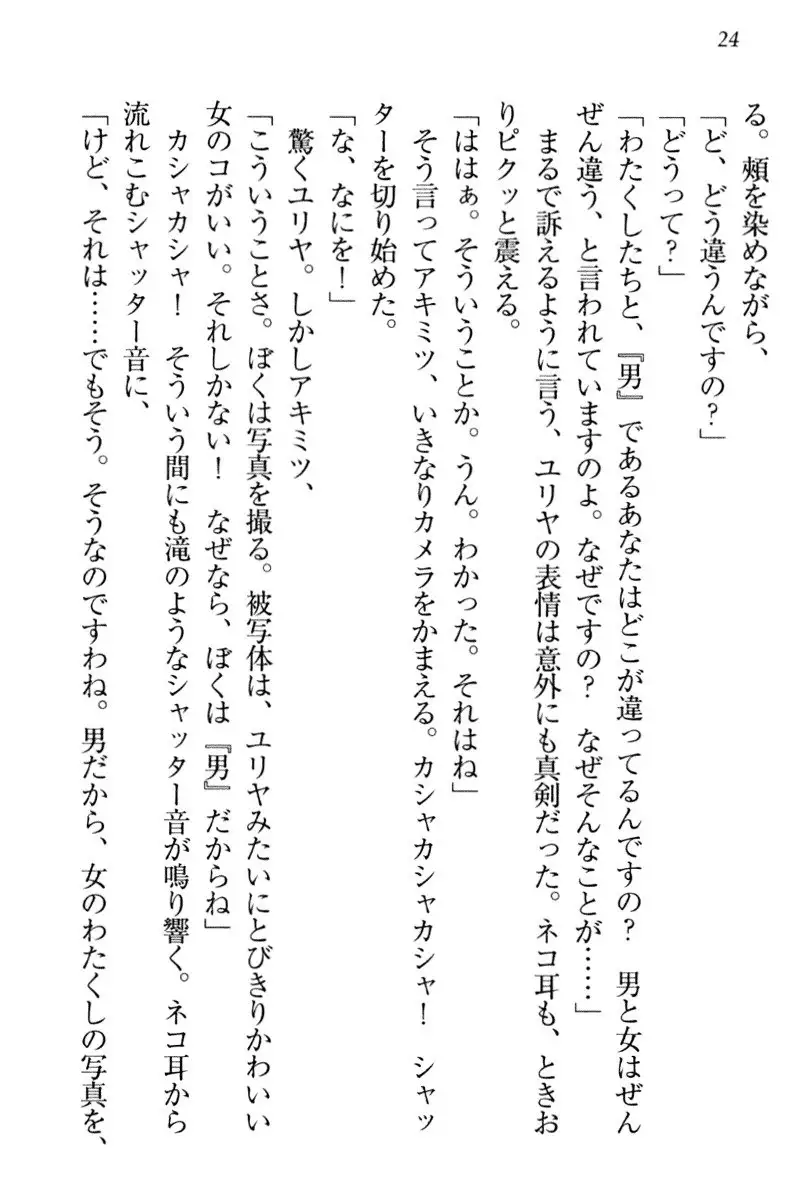 24
る。頬を染めながら、
「ど、どう違うんですの？」
「どうって？」
「わたくしたちと、『男』であるあなたはどこが違ってるんですの？　男と女はぜん
ぜん違う、と言われていますのよ。なぜですの？　なぜそんなことが……」
まるで訴えるように言う、ユリヤの表情は意外にも真剣だった。ネコ耳も、ときお
りピクッと震える。
「ははぁ。そういうことか。うん。わかった。それはね」
そう言ってアキミツ、いきなりカメラをかまえる。カシャカシャカシャ！　シャッ
ターを切り始めた。
「な、なにを！」
驚くユリヤ。しかしアキミツ、
「こういうことさ。ぼくは写真を撮る。被写体は、ユリヤみたいにとびきりかわいい
女のコがいい。それしかない！　なぜなら、ぼくは『男』だからね」
カシャカシャ！　そういう間にも滝のようなシャッター音が鳴り響く。ネコ耳から
流れこむシャッター音に、
「けど、それは……でもそう。そうなのですわね。男だから、女のわたくしの写真を、